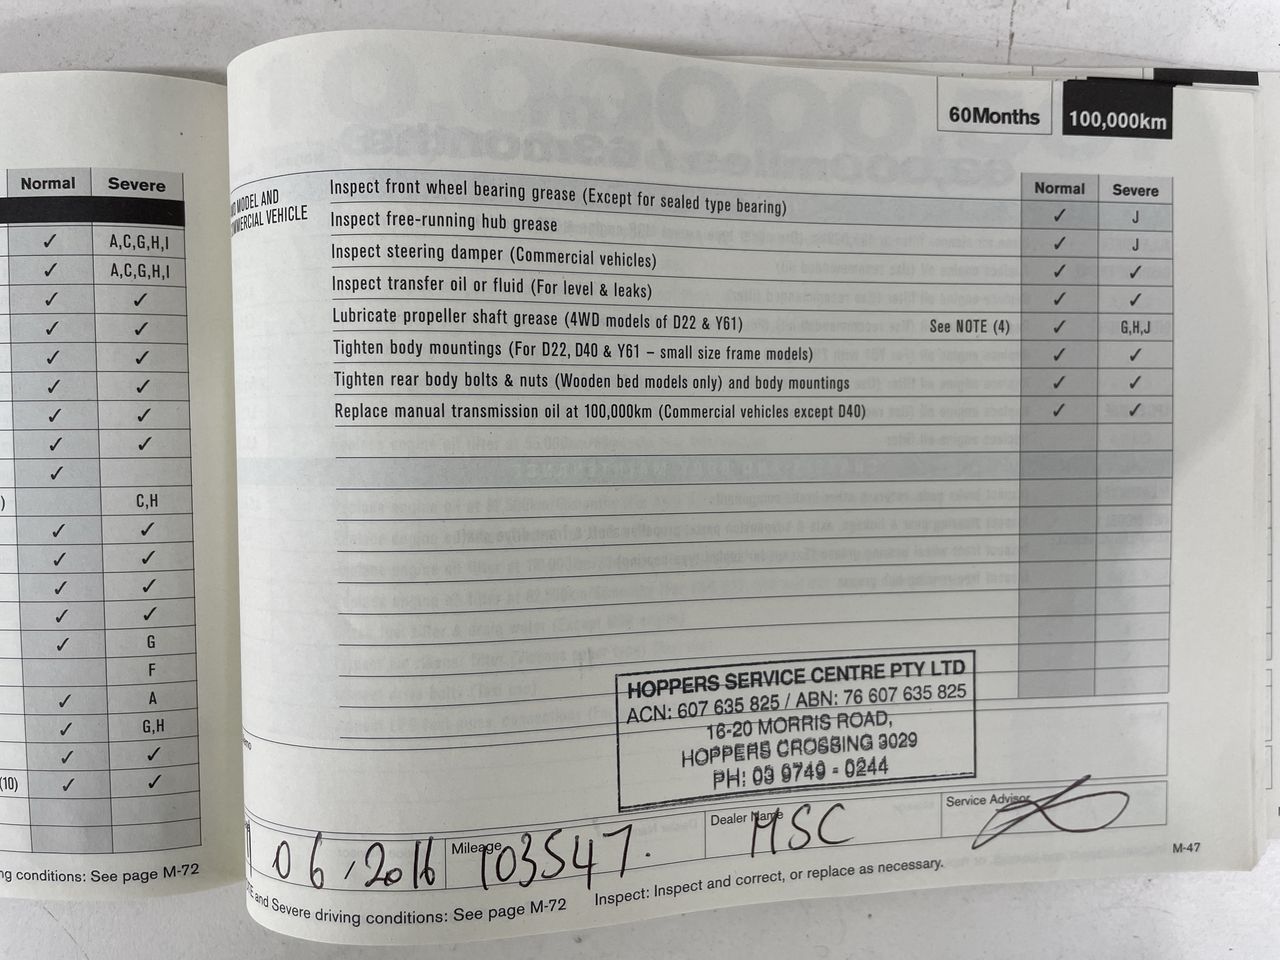 Normal Severe
✓ A,C,G,H,I
✓ A,C,G,H,I
✓ ✓
✓ ✓
✓ ✓
✓ ✓
✓ ✓
✓ ✓
✓
) C,H
✓ ✓
✓ ✓
✓ ✓
✓ ✓
✓ G
F
✓ A
✓ G,H
✓ ✓
(10) ✓ ✓
conditions: See page M-72
60Months 100,000km
Normal Severe
MODEL AND
VEHICLE
Inspect front wheel bearing grease (Except for sealed type bearing) ✓ J
Inspect free-running hub grease ✓ J
Inspect steering damper (Commercial vehicles) ✓ ✓
Inspect transfer oil or fluid (For level & leaks) ✓ ✓
Lubricate propeller shaft grease (4WD models of D22 & Y61) See NOTE (4) ✓ G,H,J
Tighten body mountings (For D22, D40 & Y61 – small size frame models) ✓ ✓
Tighten rear body bolts & nuts (Wooden bed models only) and body mountings ✓ ✓
Replace manual transmission oil at 100,000km (Commercial vehicles except D40) ✓ ✓
HOPPERS SERVICE CENTRE PTY LTD
ACN: 607 635 825 / ABN: 76 607 635 825
16-20 MORRIS ROAD,
HOPPERS CROSSING 3029
PH: 03 9749 - 0244
06/2016 Mileage 103547. Dealer Name HSC Service Advisor
and Severe driving conditions: See page M-72 Inspect: Inspect and correct, or replace as necessary.
M-47